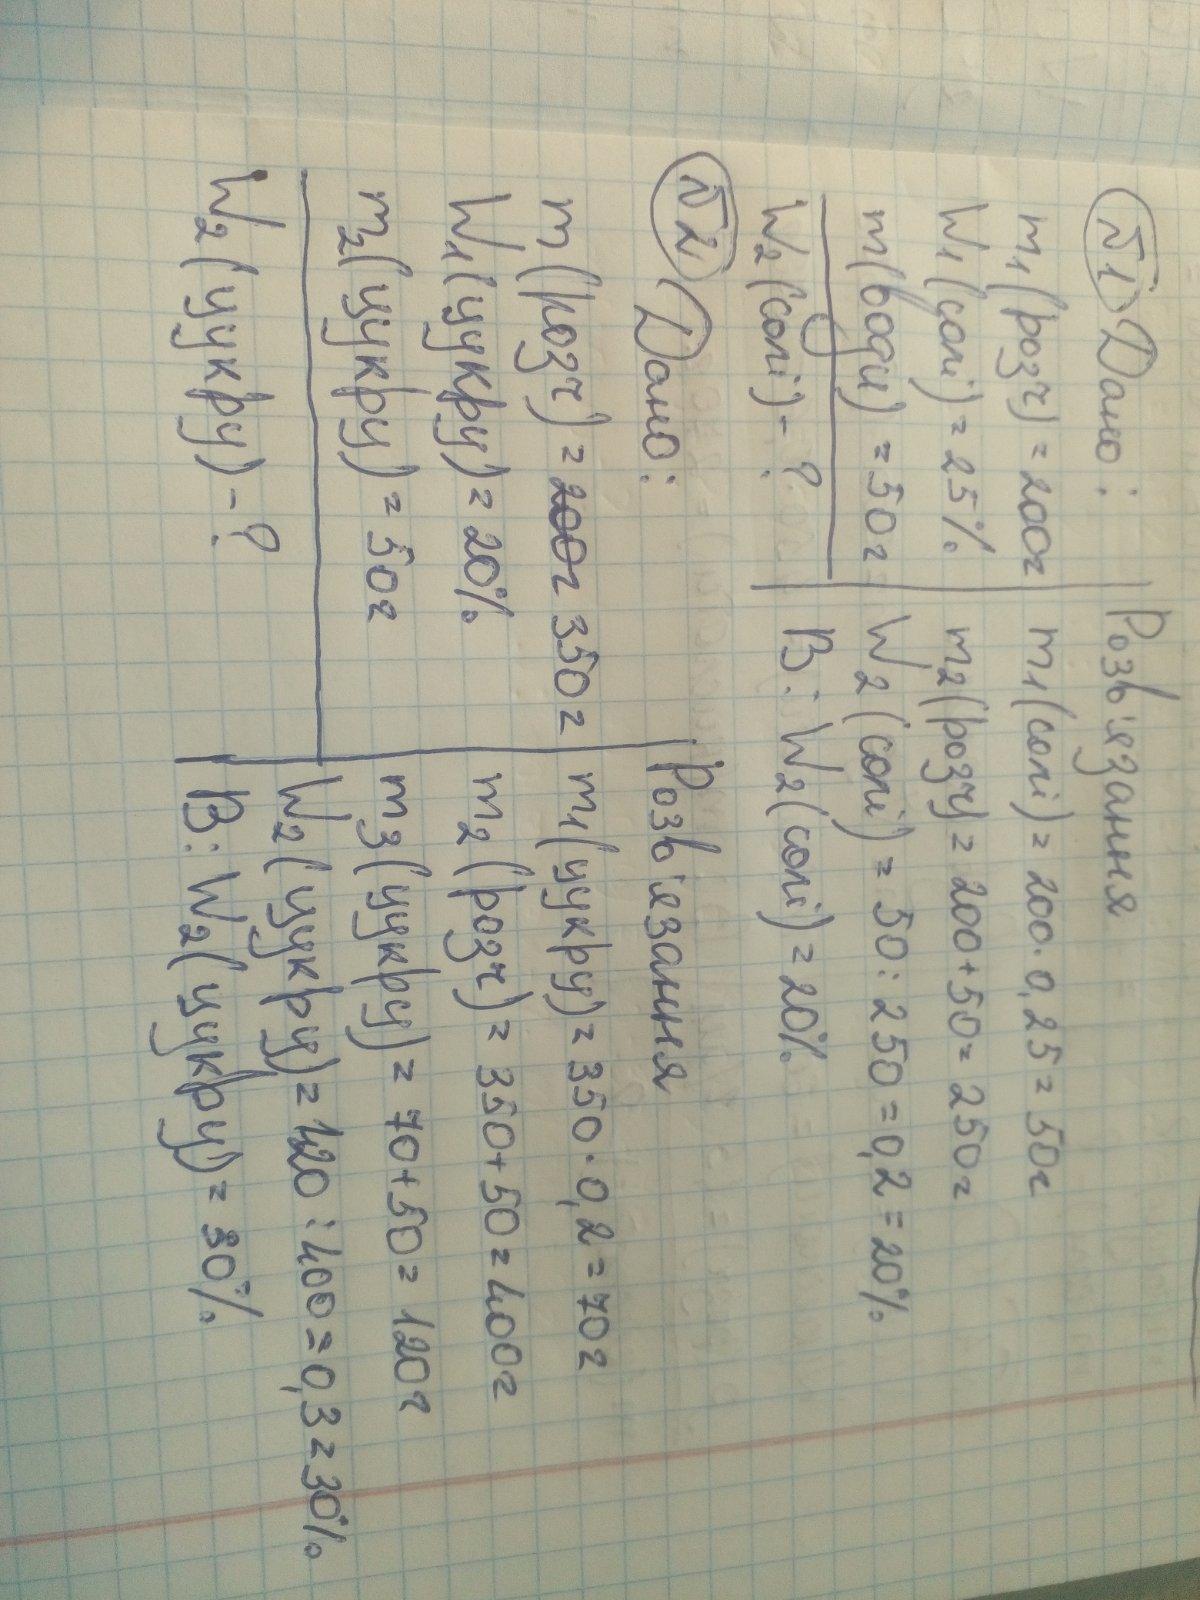 №1 Дано:
m₁(розч) = 200г
W₁(солі) = 25%
m(води) = 50г
W₂(солі) - ?
Розв'язання
m₁(солі) = 200 · 0,25 = 50г
m₂(розч) = 200 + 50 = 250г
W₂(солі) = 50 : 250 = 0,2 = 20%
В: W₂(солі) = 20%
№2 Дано:
m(розч) = 200г 350г
W₁(цукру) = 20%
m₂(цукру) = 50г
W₂(цукру) - ?
Розв'язання
m₁(цукру) = 350 · 0,2 = 70г
m₂(розч) = 350 + 50 = 400г
m₃(цукру) = 70 + 50 = 120г
W₂(цукру) = 120 : 400 = 0,3 = 30%
В: W₂(цукру) = 30%